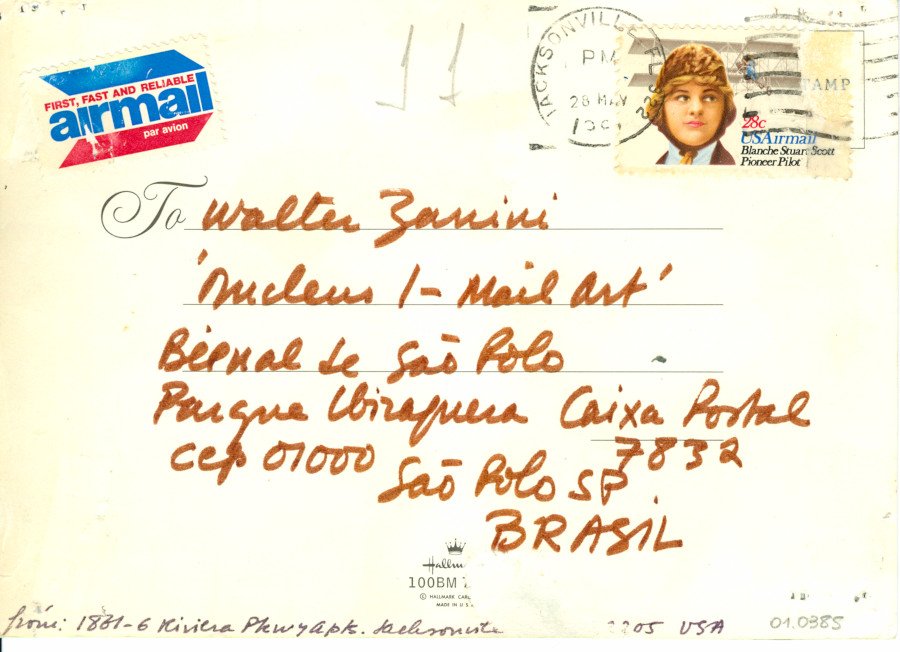 11
FIRST, FAST AND RELIABLE
airmail
par avion
JACKSONVILLE, FL
PM
28 MAY
STAMP
28c
USAirmail
Blanche Stuart Scott
Pioneer Pilot
To Walter Zanini
'Nucleus 1 - Mail Art'
Biennal de São Polo
Parque Ibirapuera Caixa Postal
7832
CEP 01000
São Polo SP
BRASIL
Hallm
100BM
© HALLMARK CAR
MADE IN U.S.
from: 1861-6 Riviera Pkwy Apts. Jacksonville
2205 USA
01.0385